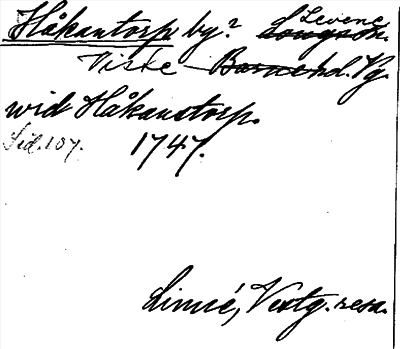 Håkantorp by? Levene Longs sn.
Viste Barne hd. Vg.
wid Håkanstorp.
Sid. 107. 1747.
Linné, Vestg. resa.